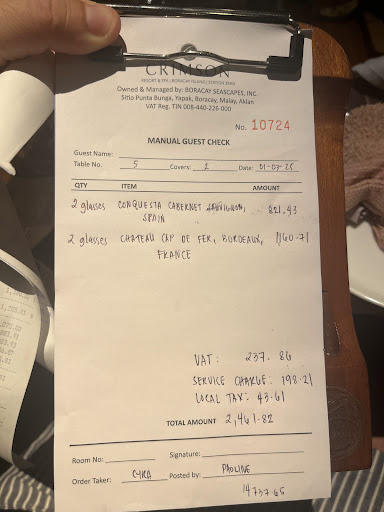 CRIMSON
RESORT & SPA | BORACAY ISLAND | STATION ZERO
Owned & Managed by: BORACAY SEASCAPES, INC.
Sitio Punta Bunga, Yapak, Boracay, Malay, Aklan
VAT Reg. TIN 008-440-226-000
No. 10724
MANUAL GUEST CHECK
Guest Name:
Table No. 5 Covers: 2 Date: 01-07-25
QTY ITEM AMOUNT
2 glasses CONQUESTA CABERNET SAUVIGNON, 821.43
SPAIN
2 glasses CHATEAU CAP DE FER, BORDEAUX, 1160.71
FRANCE
VAT: 237.86
SERVICE CHARGE: 198.21
LOCAL TAX: 43.61
TOTAL AMOUNT 2,461.82
Room No: Signature:
Order Taker: CYRA Posted by: PAOLINE
14737.65